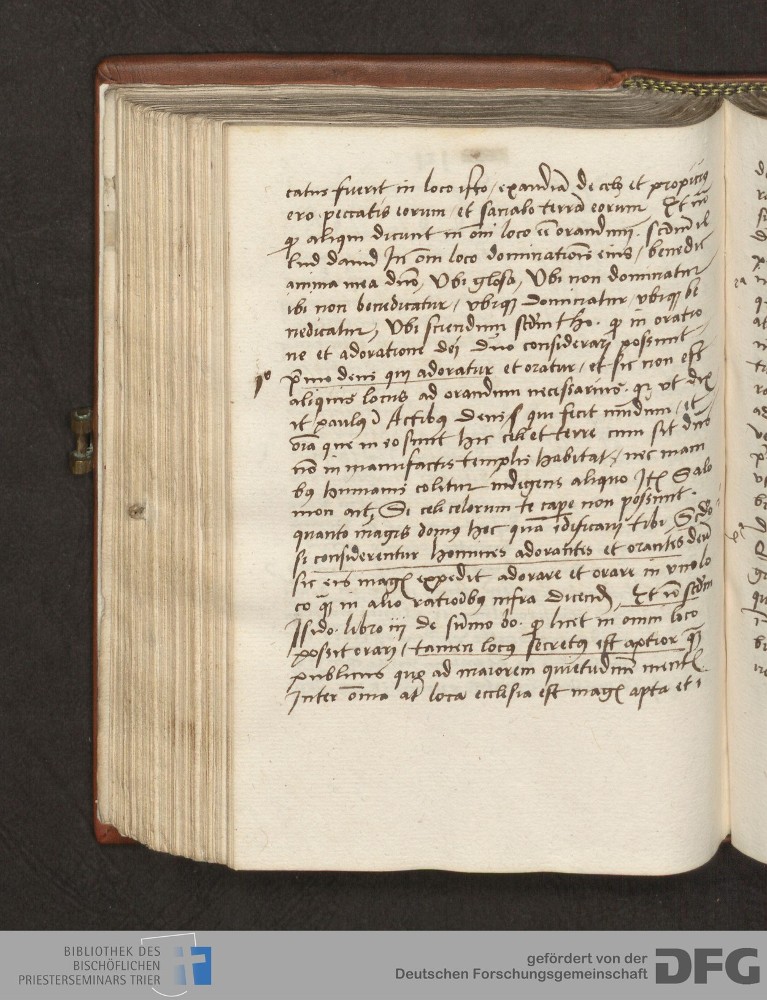 catus fuerit in loco isto / exaudiā de celis et propicius
ero peccatis eorum / et sanabo terrā eorum Et
ꝙ aliqui dicunt in oni loco eē orandum. scdm il
lud dauid In om̄ loco dominationis eius / benedic
anima mea dn̄o, Vbi glosa, Vbi non dominatur
ibi non benedicatur / vbiqȝ dominatur, vbiqȝ be
nedicatur, Vbi sciendum scdm tho. ꝙ in oratio
ne et adoratione dei duo considerari possunt
pº
p̄mo deus qui adoratur et oratur, et sic non est
aliquis locus ad orandum necessarius. qȝ vt dix
it paulꝰ ī Actibꝰ deus qui fecit mundum / et
oīa que in eo sunt hic celi et terre cum sit dn̄s
nō in manufactis templis habitat / nec mani
bꝰ humanis colitur indigens aliquo Itē Salo
mon ait, Si celi celorum te capere non possunt.
quanto magis domus hec quā edificaui tibi Scdo
si considerentur homines adorantes et orantes deū
sic eis magis expedit adorare et orare in vno lo
co qȝ in alio rationibꝰ infra dicendis, Et iō scdm
Isido. libro iij de sūmo bo. ꝙ licet in omni loco
possit orari / tamen locus secretꝰ est aptior qȝ
publicus quo ad maiorem quietudinē mentis.
Inter om̄ia at loca ecclesia est magis apta et i
BIBLIOTHEK DES
BISCHÖFLICHEN
PRIESTERSEMINARS TRIER
gefördert von der
Deutschen Forschungsgemeinschaft
DFG